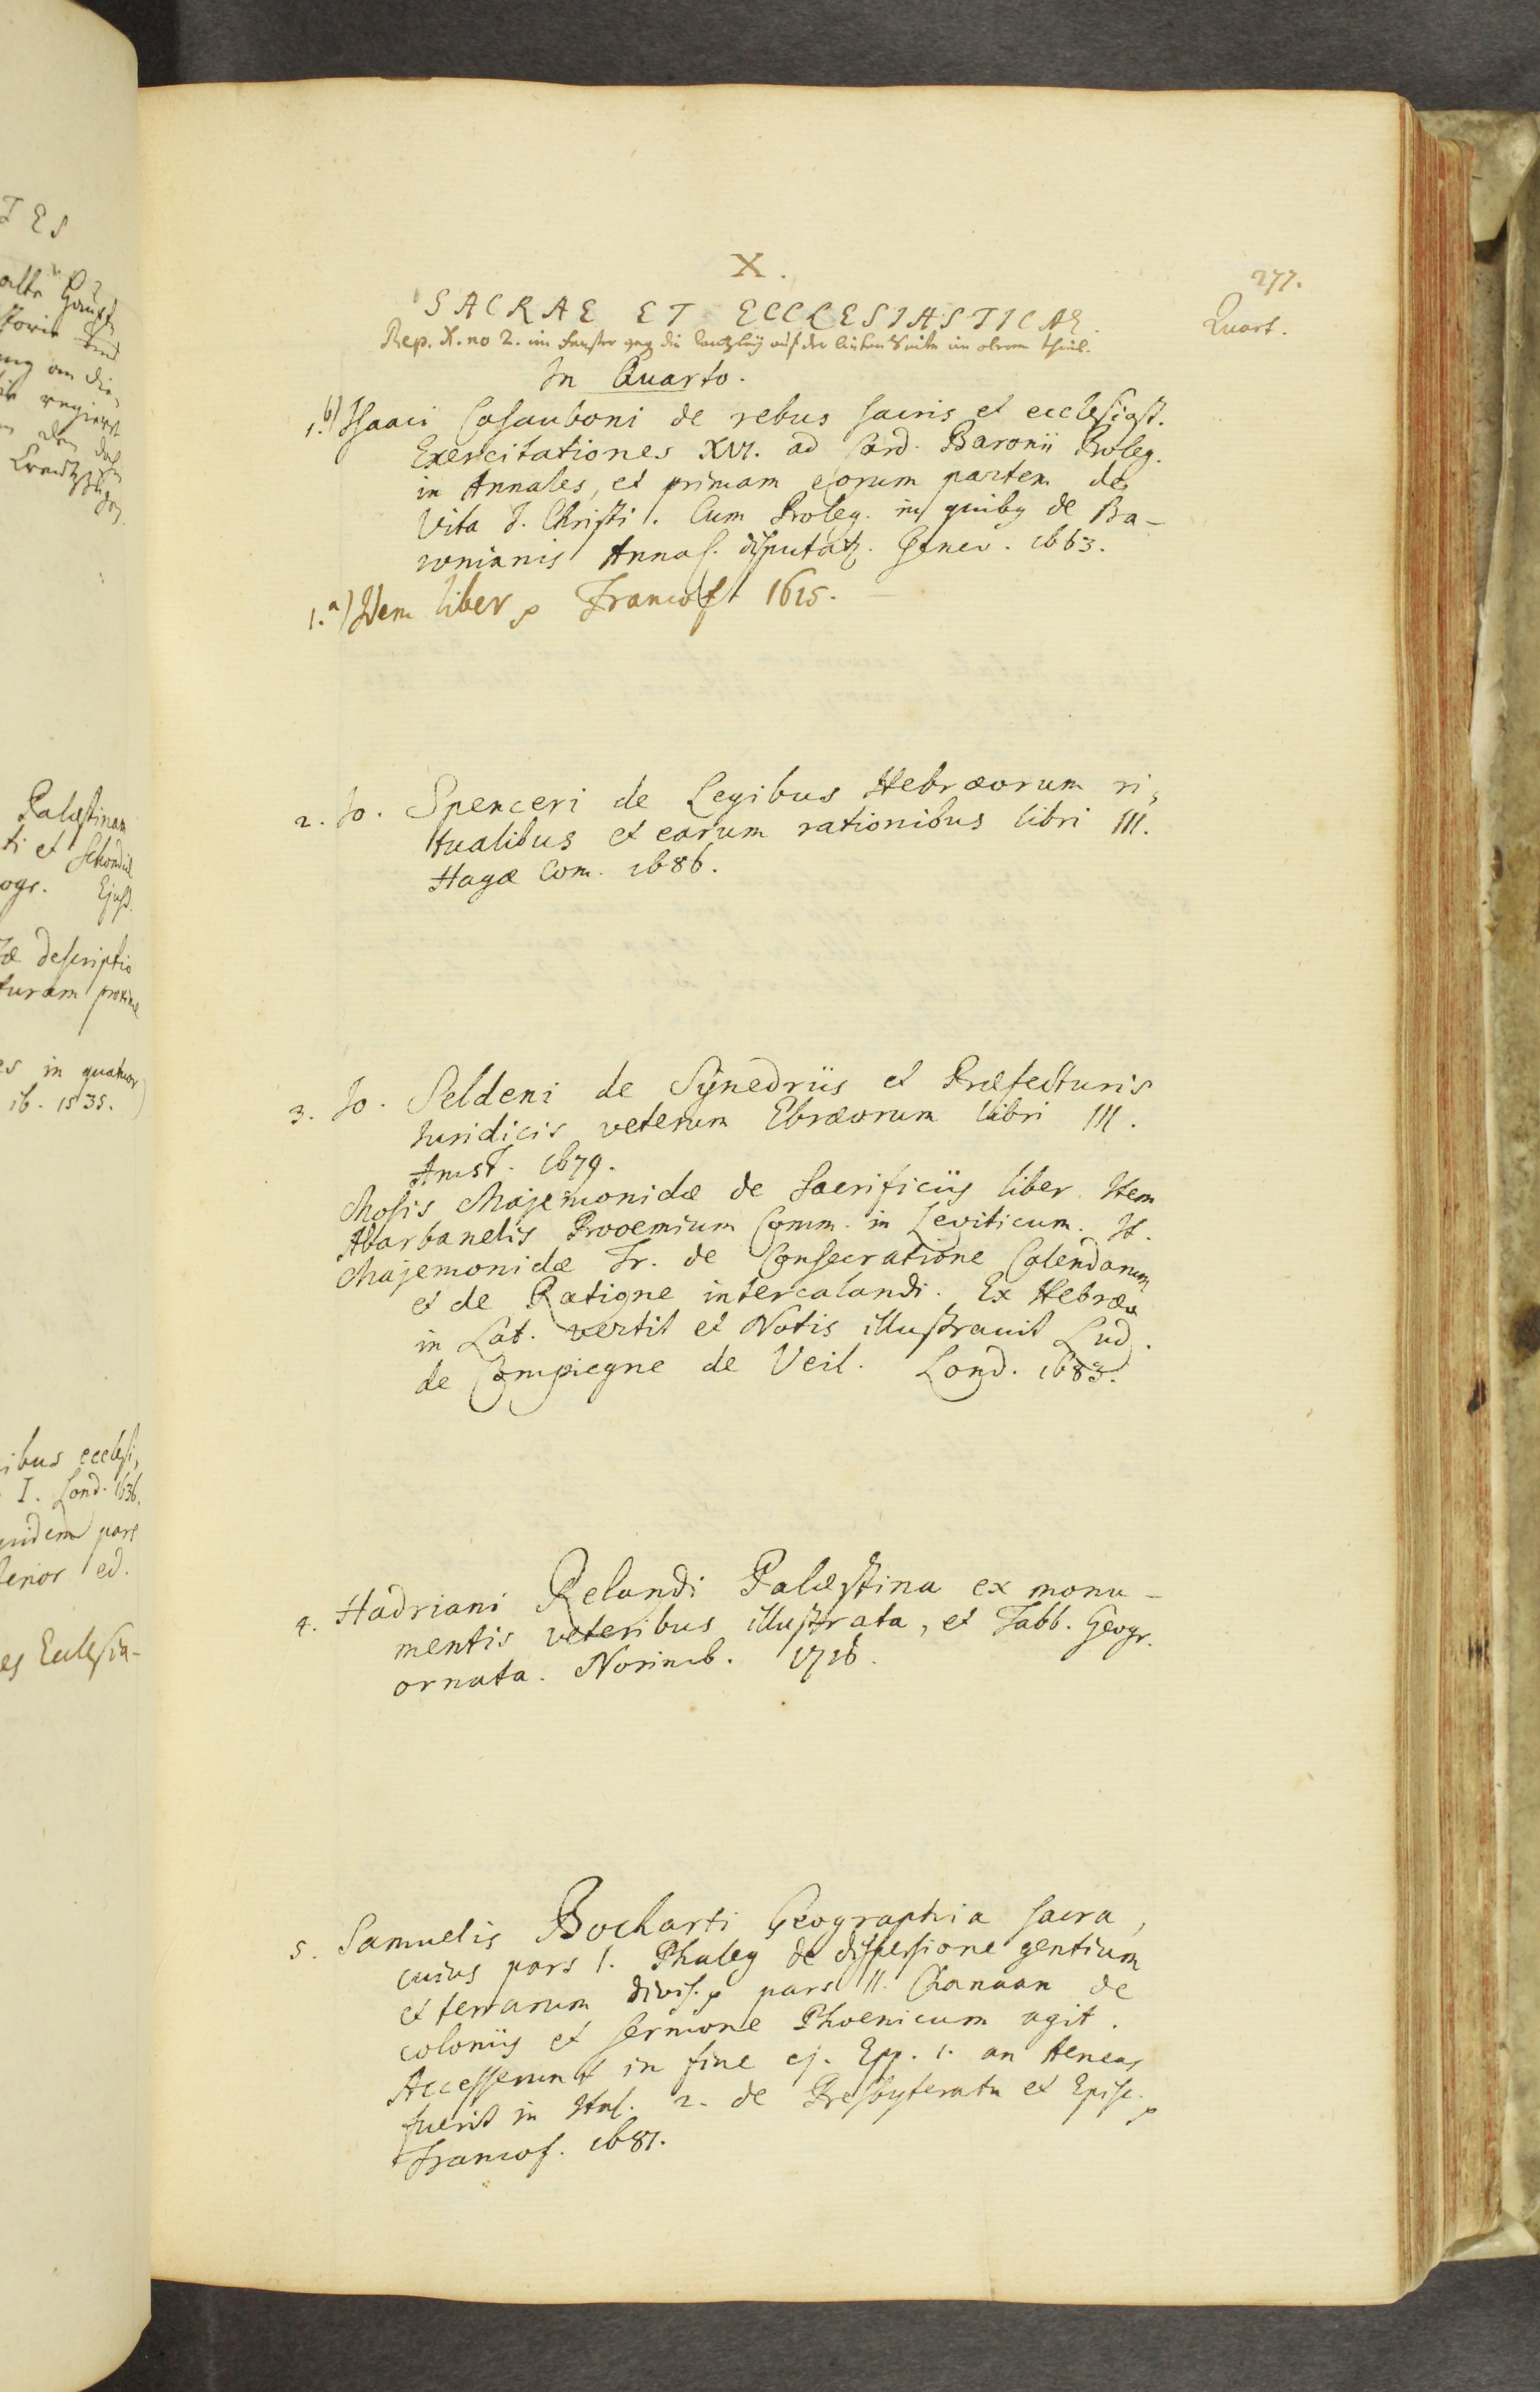 X.
277.
SACRAE ET ECCLESIASTICAE.
Quart.
Rep. X. no 2. im Fenster geg die Cantzley auf der linken Seite im obern theil.
In Quarto.
1.b) Isaaci Casauboni de rebus sacris et ecclesiast.
Exercitationes XVI. ad Card. Baronii Proleg.
in Annales, et primam eorum partem de
Vita J. Christi. Cum Proleg. in quibq de Ba-
ronianis Annal. disputat. Genev. 1663.
1.a) Idem liber Francoft 1615.
2. Jo. Spenceri de Legibus Hebræorum ri,
tualibus et earum rationibus libri III.
Hagæ Com. 1686.
3. Jo. Seldeni de Synedriis et Præfecturis
Juridicis veterum Ebræorum libri III.
Amst. 1679.
Mosis Majemonidæ de Sacrificiis liber. Item
Abarbanelis Prooemium Comm. in Leviticum. It.
Majemonidæ Tr. de Consecratione Calendarum
et de Ratione intercalandi. Ex Hebræo
in Lat. vertit et Notis illustravit Lud.
de Compiegne de Veil. Lond. 1683.
4. Hadriani Relandi Palæstina ex monu-
mentis veteribus illustrata, et Tabb. Geogr.
ornata. Norimb. 1716.
5. Samuelis Bocharti Geographia sacra,
cuius pars I. Phaleg de dispersione gentium
et terrarum divis. pars II. Chanaan de
coloniis et sermone Phoenicum agit.
Accesserunt in fine ej. Epp. 1. an Aeneas
fuerit in Ital. 2. de Presbyteratu et Episc.
Francof. 1681.
TES
Palæstinam
ti et
ogr. Ejusd.
æ descriptio
turam
es in quatuor
ib. 1535.
ibus ecclesi,
I. Lond. 1636.
quidem pars
ed.
es Ecclesia-